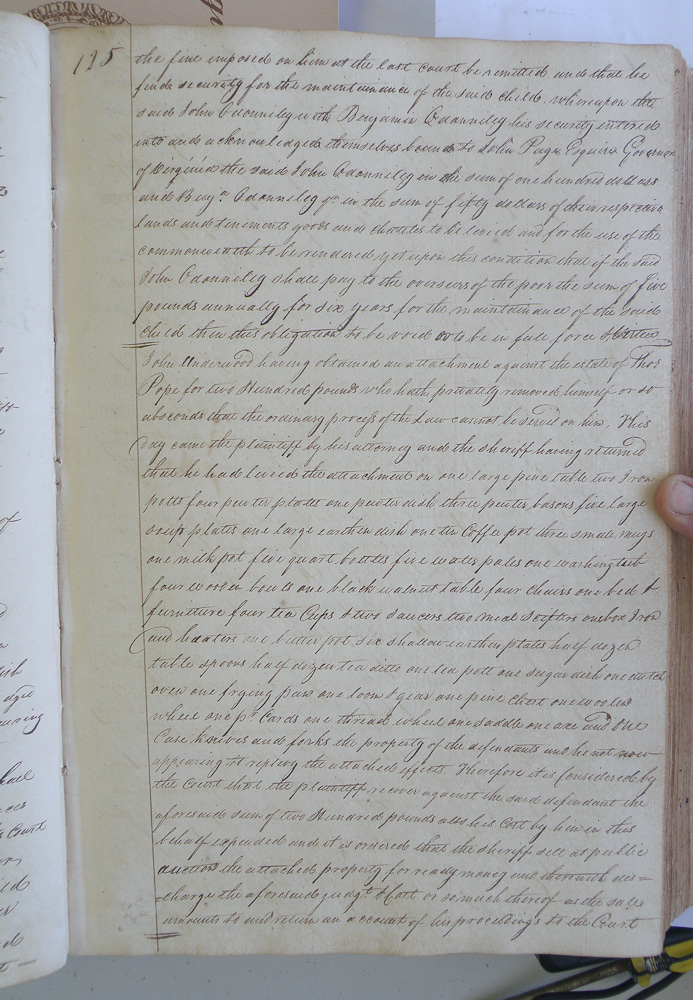 125
the fine imposed on him at the last court be remitted and that he
finds security for the maintainance of the said child. whereupon the
said John Odonniley with Benjamin Odonniley his security entered
into and acknowledged themselves bound to John Page Esquire Governor
of Virginia the said John Odonniley in the sum of one hundred dollars
and Benj.ª Odonniley jr in the sum of fifty dollars of their respective
lands and tenements goods and chattles to be levied and for the use of the
commonwealth to be rendered yet upon this condition that if the said
John Odonniley shall pay to the overseers of the poor the sum of five
pounds annually for six years for the maintainance of the said
child then this obligation to be void or to be in full force &
John Underwood having obtained an attachment against the estate of Thos
Pope for two Hundred pounds who hath privately removed himself or so
absconds that the ordinary process of the Law cannot be served on him. This
day came the plaintiff by his attorney and the sheriff having returned
that he had levied the attachment on one large pine table two Iron
potts four pewter plates one pewter dish three pewter basons five large
soup plates one large earthen dish one tin Coffe pot three small mugs
one milk pot five quart bottles five water pales one washing tub
four wooden bowls one black walnut table four chairs one bed &
furniture four tea Cups & two saucers two meal seifters one box Iron
and heaters one butter pot six shallow earthen plates half dozen
table spoons half dozen tea ditto one tea pott one sugar dish one dutch
oven one frying pan one loom & gear one pine Chest one woolen
wheel one pr Cards one thread wheel one saddle one axe and One
Case knives and forks the property of the defendants and he not now
appearing to replevy the attached effects. Therefore it is Considered by
the Court that the plaintiff recover against the said defendant the
aforesaid sum of two Hundred pounds also his Cost by him in this
behalf expended and it is ordered that the sheriff sell at public
auction the attached property for ready money and therewith dis=
=charge the aforesaid judgt. & Cost or so much thereof as the sale
amounts to and return an account of his proceedings to the Court